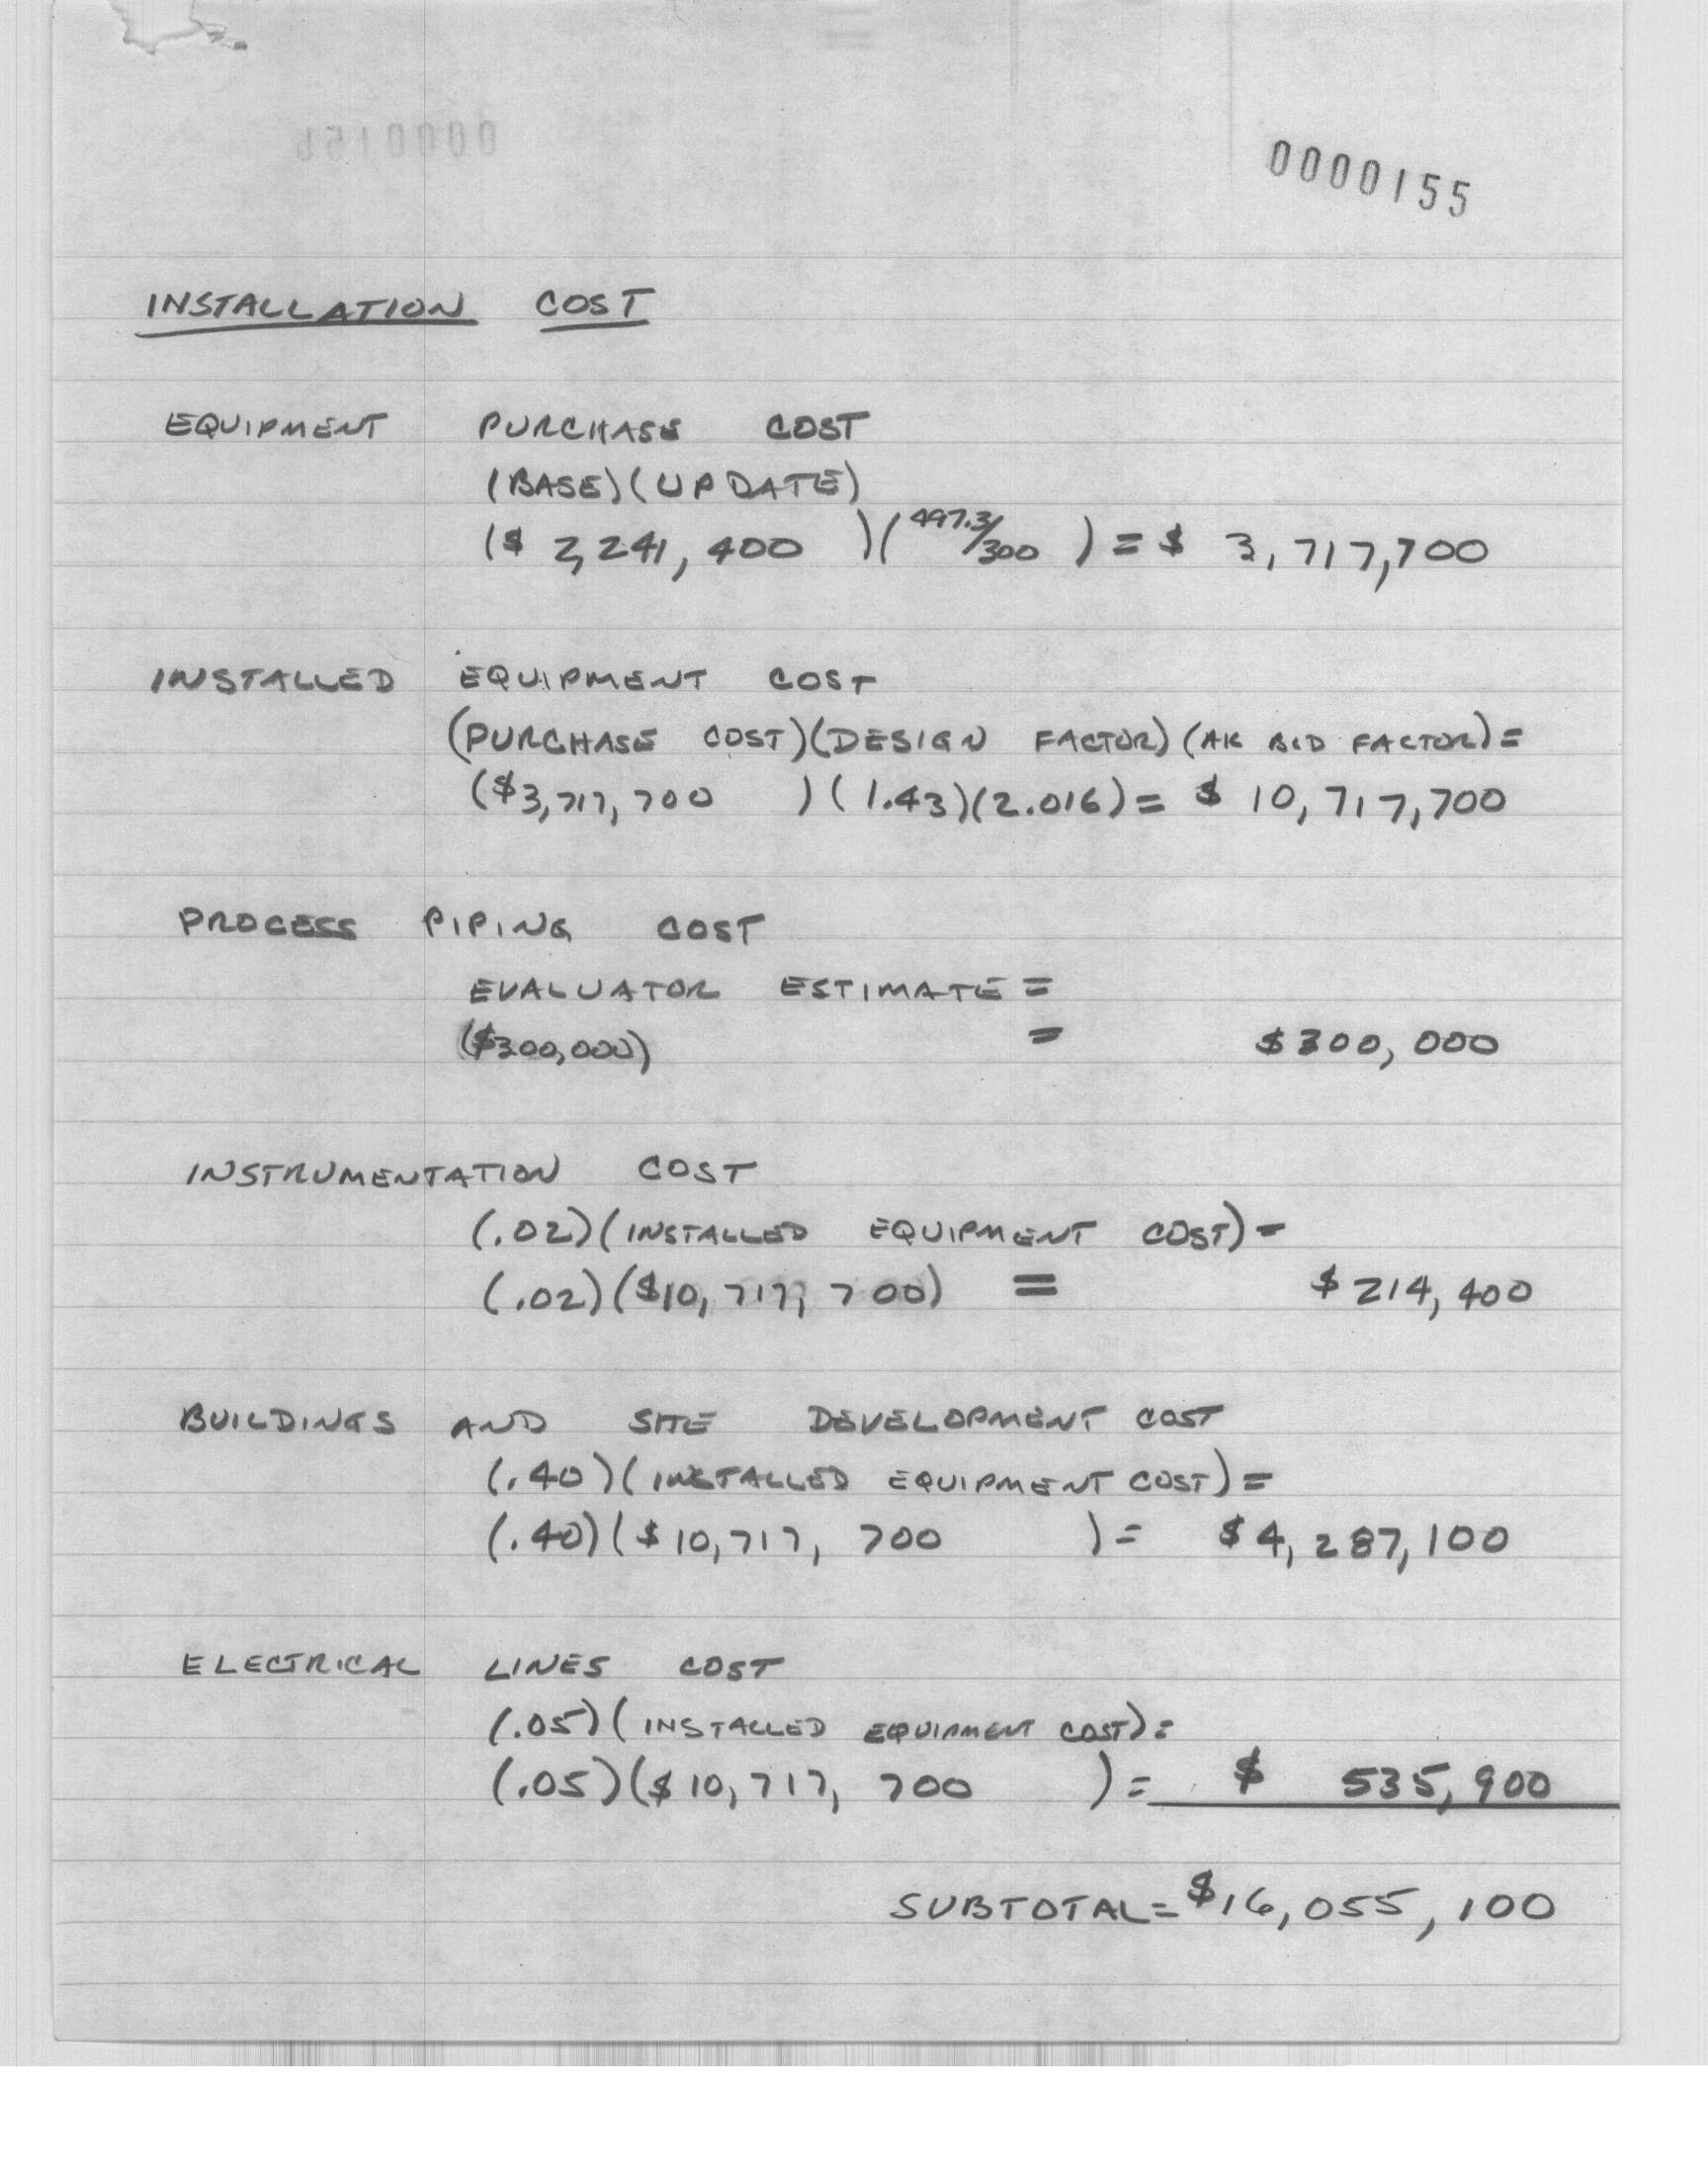 0000155
INSTALLATION COST
EQUIPMENT PURCHASE COST
(BASE)(UPDATE)
($ 2,241,400 )(497.3/300 ) = $ 3,717,700
INSTALLED EQUIPMENT COST
(PURCHASE COST)(DESIGN FACTOR)(AK BID FACTOR) =
($3,717,700 )(1.43)(2.016) = $ 10,717,700
PROCESS PIPING COST
EVALUATOR ESTIMATE =
($300,000) = $300,000
INSTRUMENTATION COST
(.02)(INSTALLED EQUIPMENT COST) =
(.02)($10,717,700) = $214,400
BUILDINGS AND SITE DEVELOPMENT COST
(.40)(INSTALLED EQUIPMENT COST) =
(.40)($10,717,700 ) = $4,287,100
ELECTRICAL LINES COST
(.05)(INSTALLED EQUIPMENT COST) =
(.05)($10,717,700 ) = $ 535,900
SUBTOTAL = $16,055,100